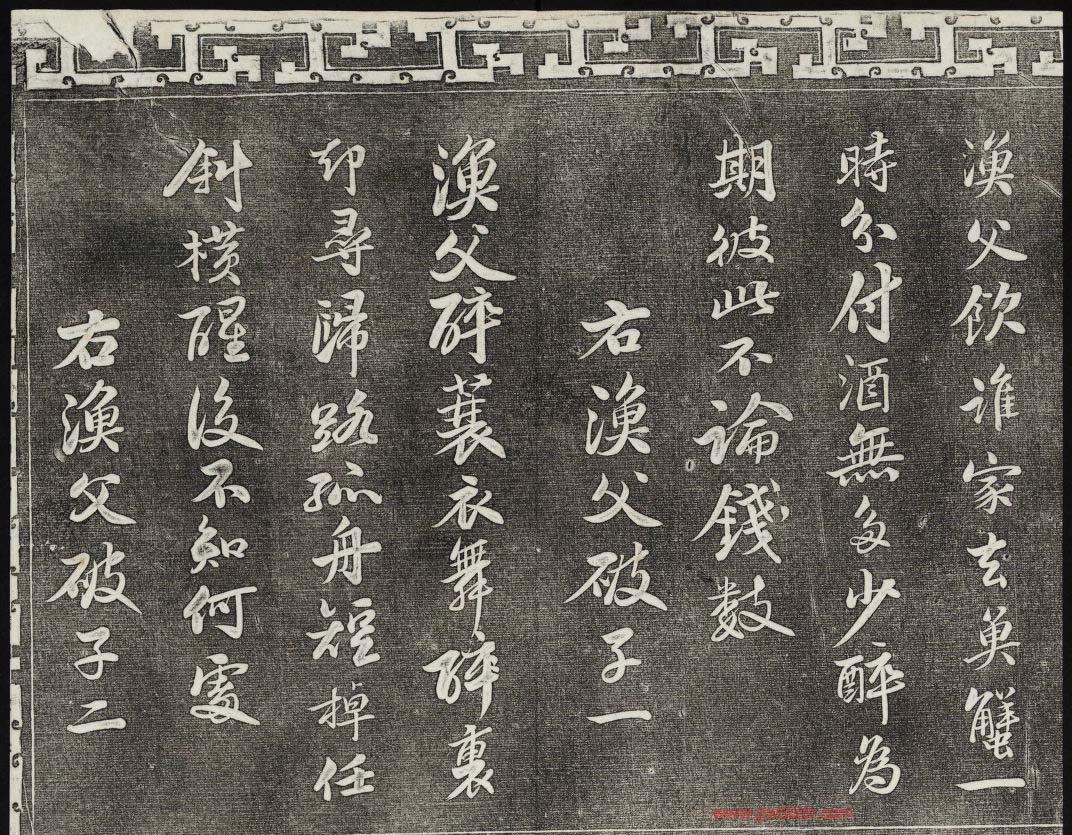 漁父飲誰家去魚蟹一
時分付酒無多少醉為
期彼此不論錢數
右漁父破子一
漁父醉蓑衣舞醉裏
却尋歸路孤舟短棹任
斜橫醒後不知何處
右漁父破子二